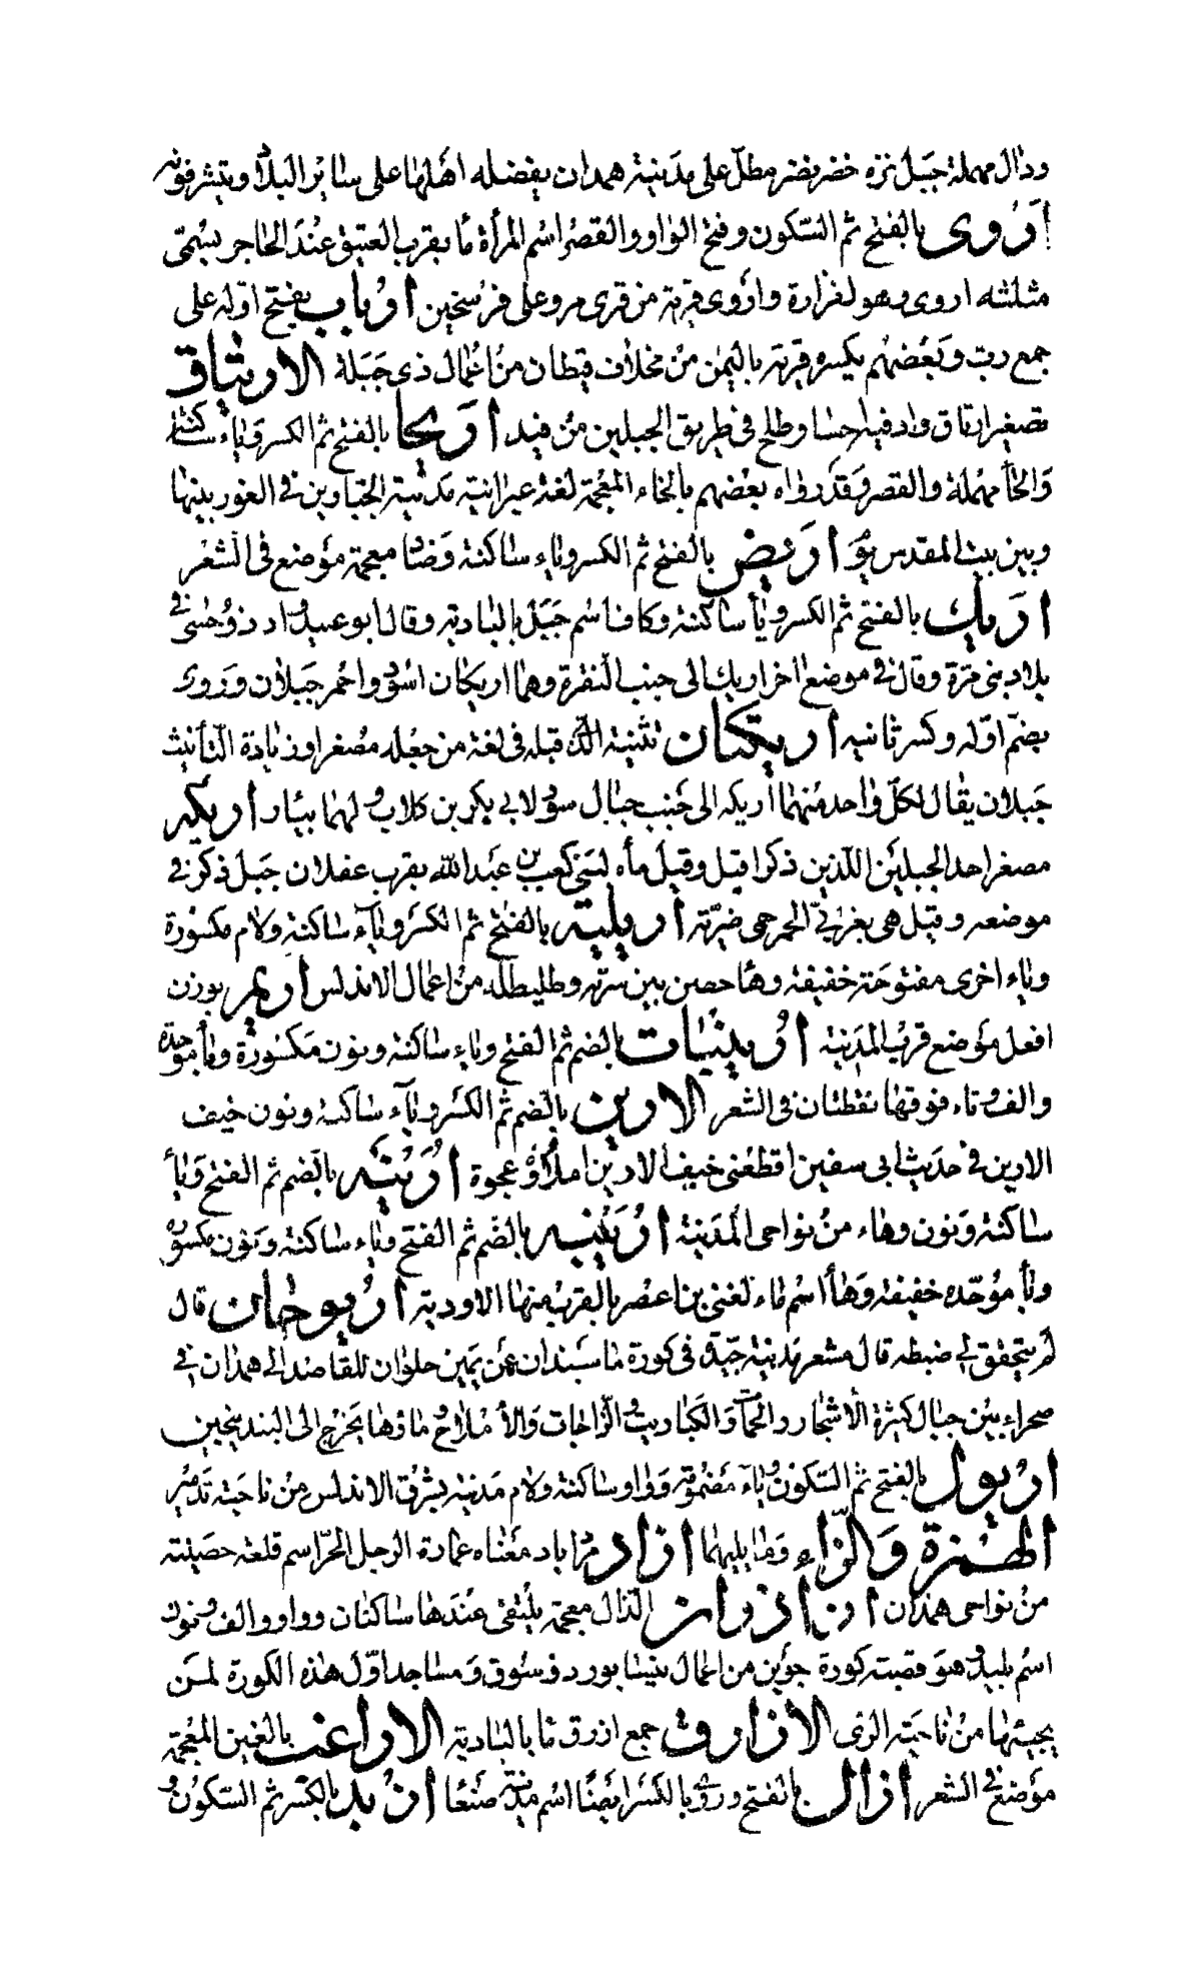 ودال مهملة جبل نزه خضر نضر مطلّ على مدينة همدان يفضله اهلها على سائر البلاد ويتشرفونه
أروى بالفتح ثم السكون وفتح الواو والقصر اسم المرأة ماء بقرب العتيق عند الحاجر يسمى
مثلثه اروى وهو لفزارة وأروى قرية من قرى مرو على فرسخين أرياب بفتح اوله على
جمع رب وبعضهم يكسره قرية باليمن من مخلاف قيطان من أعمال ذى جبلة الاريثاق
تصغير ارتاق واد فيه احسا وطلح فى طريق الجبلين من فيد أريحا بالفتح ثم الكسر وياء ساكنة
والحاء مهملة والقصر وقد رواه بعضهم بالخاء المعجمة لغة عبرانية مدينة الجبارين فى الغور بينها
وبين بيت المقدس يوم أريض بالفتح ثم الكسر وياء ساكنة وضاد معجمة موضع فى الشعر
أريك بالفتح ثم الكسر وياء ساكنة وكاف اسم جبل بالبادية وقال أبو عبيد واد ذو حسى فى
بلاد بنى مرة وقال فى موضع اخر اريك الى جنب النقرة وهما اريكان اسود واحمر جبلان وروى
بضم اوله وكسر ثانيه أريكتان تثنية الذى قبله فى لغة من جعله مصغرا وزيادة التأنيث
جبلان يقال لكل واحد منهما أريكه الى جنب جبال سود لابى بكر بن كلاب ولهما بيار أريكه
مصغر احد الجبلين اللذين ذكرا قبل وقيل ماء لبنى كعب بن عبد الله بقرب عفلان جبل ذكر فى
موضعه وقيل هى بغربى الحمر حمى ضرية أريلية بالفتح ثم الكسر وياء ساكنة ولام مكسورة
وياء اخرى مفتوحة خفيفة وهاء حصن بين سرته وطليطله من اعمال الاندلس أريم بوزن
افعل موضع قرب المدينة أرينبات بالضم ثم الفتح وياء ساكنة ونون مكسورة وباء موحدة
والف وتاء فوقها نقطتان فى الشعر الارين بالضم ثم الكسر وياء ساكنة ونون خيف
الارين فى حديث ابى سفين اقطعنى خيف الارين املاؤه عجوة أرينه بالضم ثم الفتح وياء
ساكنة ونون وهاء من نواحى المدينة أرينبه بالضم ثم الفتح وياء ساكنة ونون مكسورة
وباء موحده خفيفة وهاء اسم ماء لغنى بن اعصر بالقرب منها الاودية أريوجان قال
لم يتحقق لى ضبطه قال مسعر مدينة جيدة فى كورة ماسبندان عن يمين حلوان للقاصد الى همدان فى
صحراء بين جبال كثيرة الاشجار والحمات والكباريت والزاجات والأملاح ماؤها يخرج الى البندنيجين
أريول بالفتح ثم السكون وياء مضمومة وواو ساكنة ولام مدينة بشرق الاندلس من ناحية تدمير
الهمزة والزاء وما يليهما أزاد مزاباد معناه عمارة الرجل الحر اسم قلعة حصينة
من نواحى همدان الذال معجمة يلتقى عندها ساكنان وواو والف ونون
اسم بليد هو قصبة كورة جوين من اعمال نيسابور ذو سوق ومساجد اول هذه الكورة لمن
يجيئها من ناحية الرى الأزارق جمع ازرق ماء بالبادية الاراغب بالغين المعجمة
موضع فى الشعر أزال بالفتح وروى بالكسر ايضا اسم مدينة صنعا أزبد بالكسر ثم السكون و